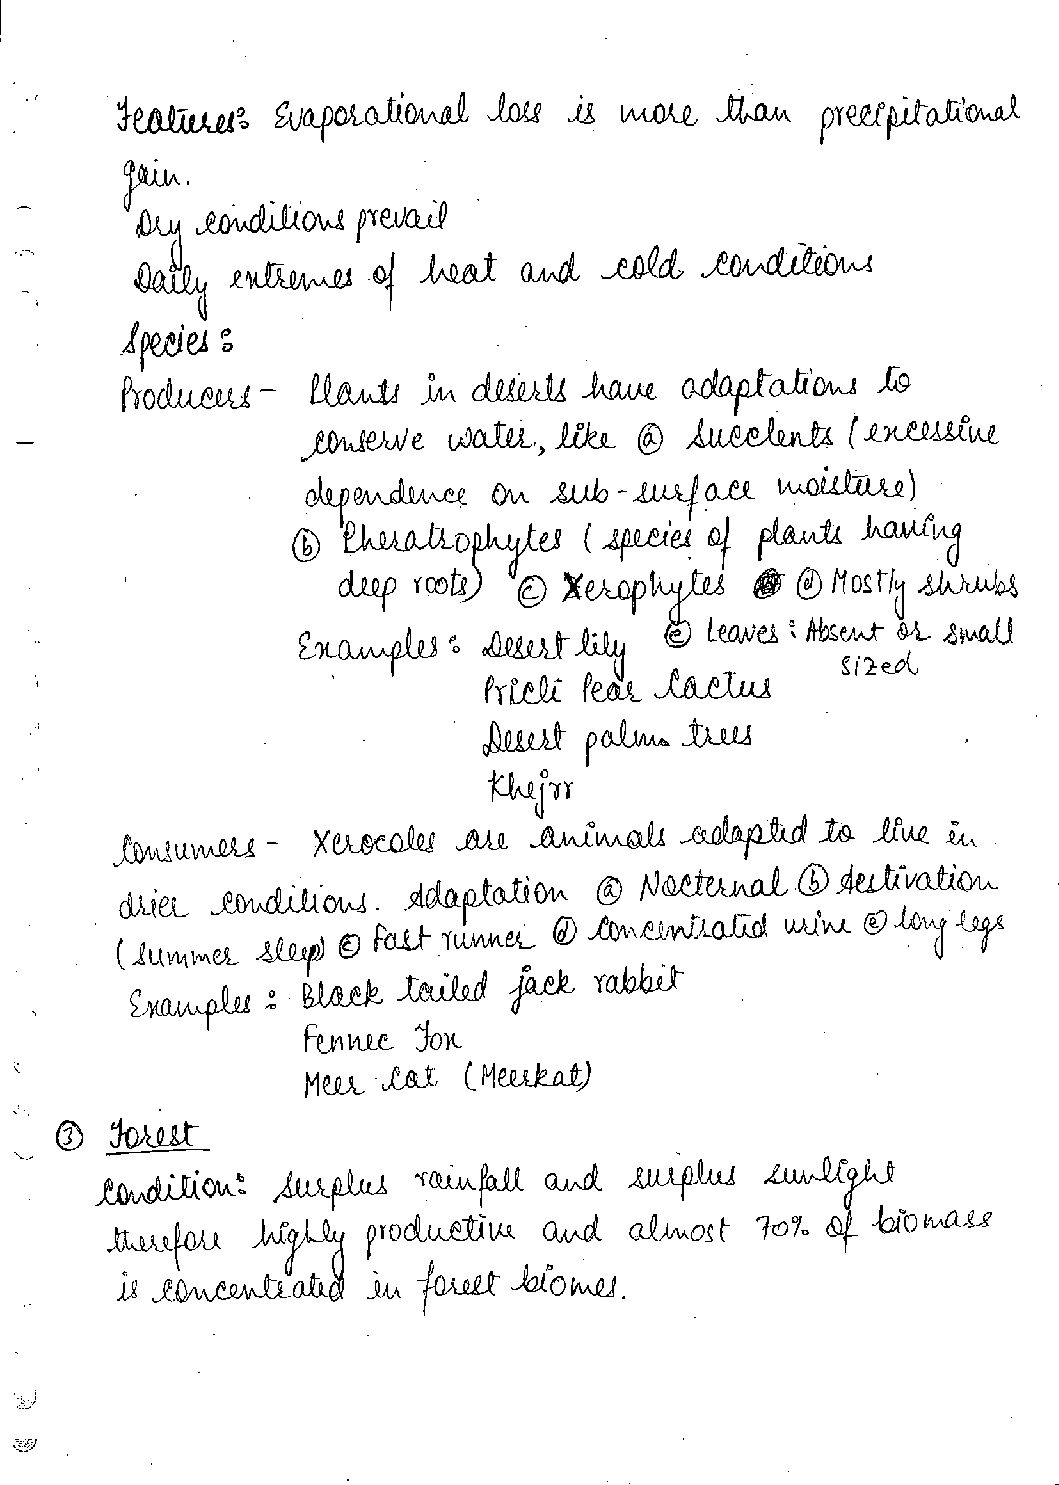 Features: Evaporational loss is more than precipitational
gain.
Dry conditions prevail
Daily extremes of heat and cold conditions
Species:
Producers - Plants in deserts have adaptations to
conserve water, like ⓐ Succlents (excessive
dependence on sub-surface moisture)
ⓑ Pheratrophytes (species of plants having
deep roots) ⓒ Xerophytes ⓓ Mostly shrubs
Examples: Desert lily ⓔ Leaves: Absent or small
sized
Pricli Pear Cactus
Desert palm trees
Khejrr
Consumers - Xerocoles are animals adapted to live in
drier conditions. Adaptation ⓐ Nocternal ⓑ Aestivation
(summer sleep) ⓒ Fast runner ⓓ Concentrated urine ⓔ long legs
Examples: Black tailed jack rabbit
Fennec Fox
Meer Cat (Meerkat)
③ Forest
Condition: Surplus rainfall and surplus sunlight
therefore highly productive and almost 70% of biomass
is concentrated in forest biomes.